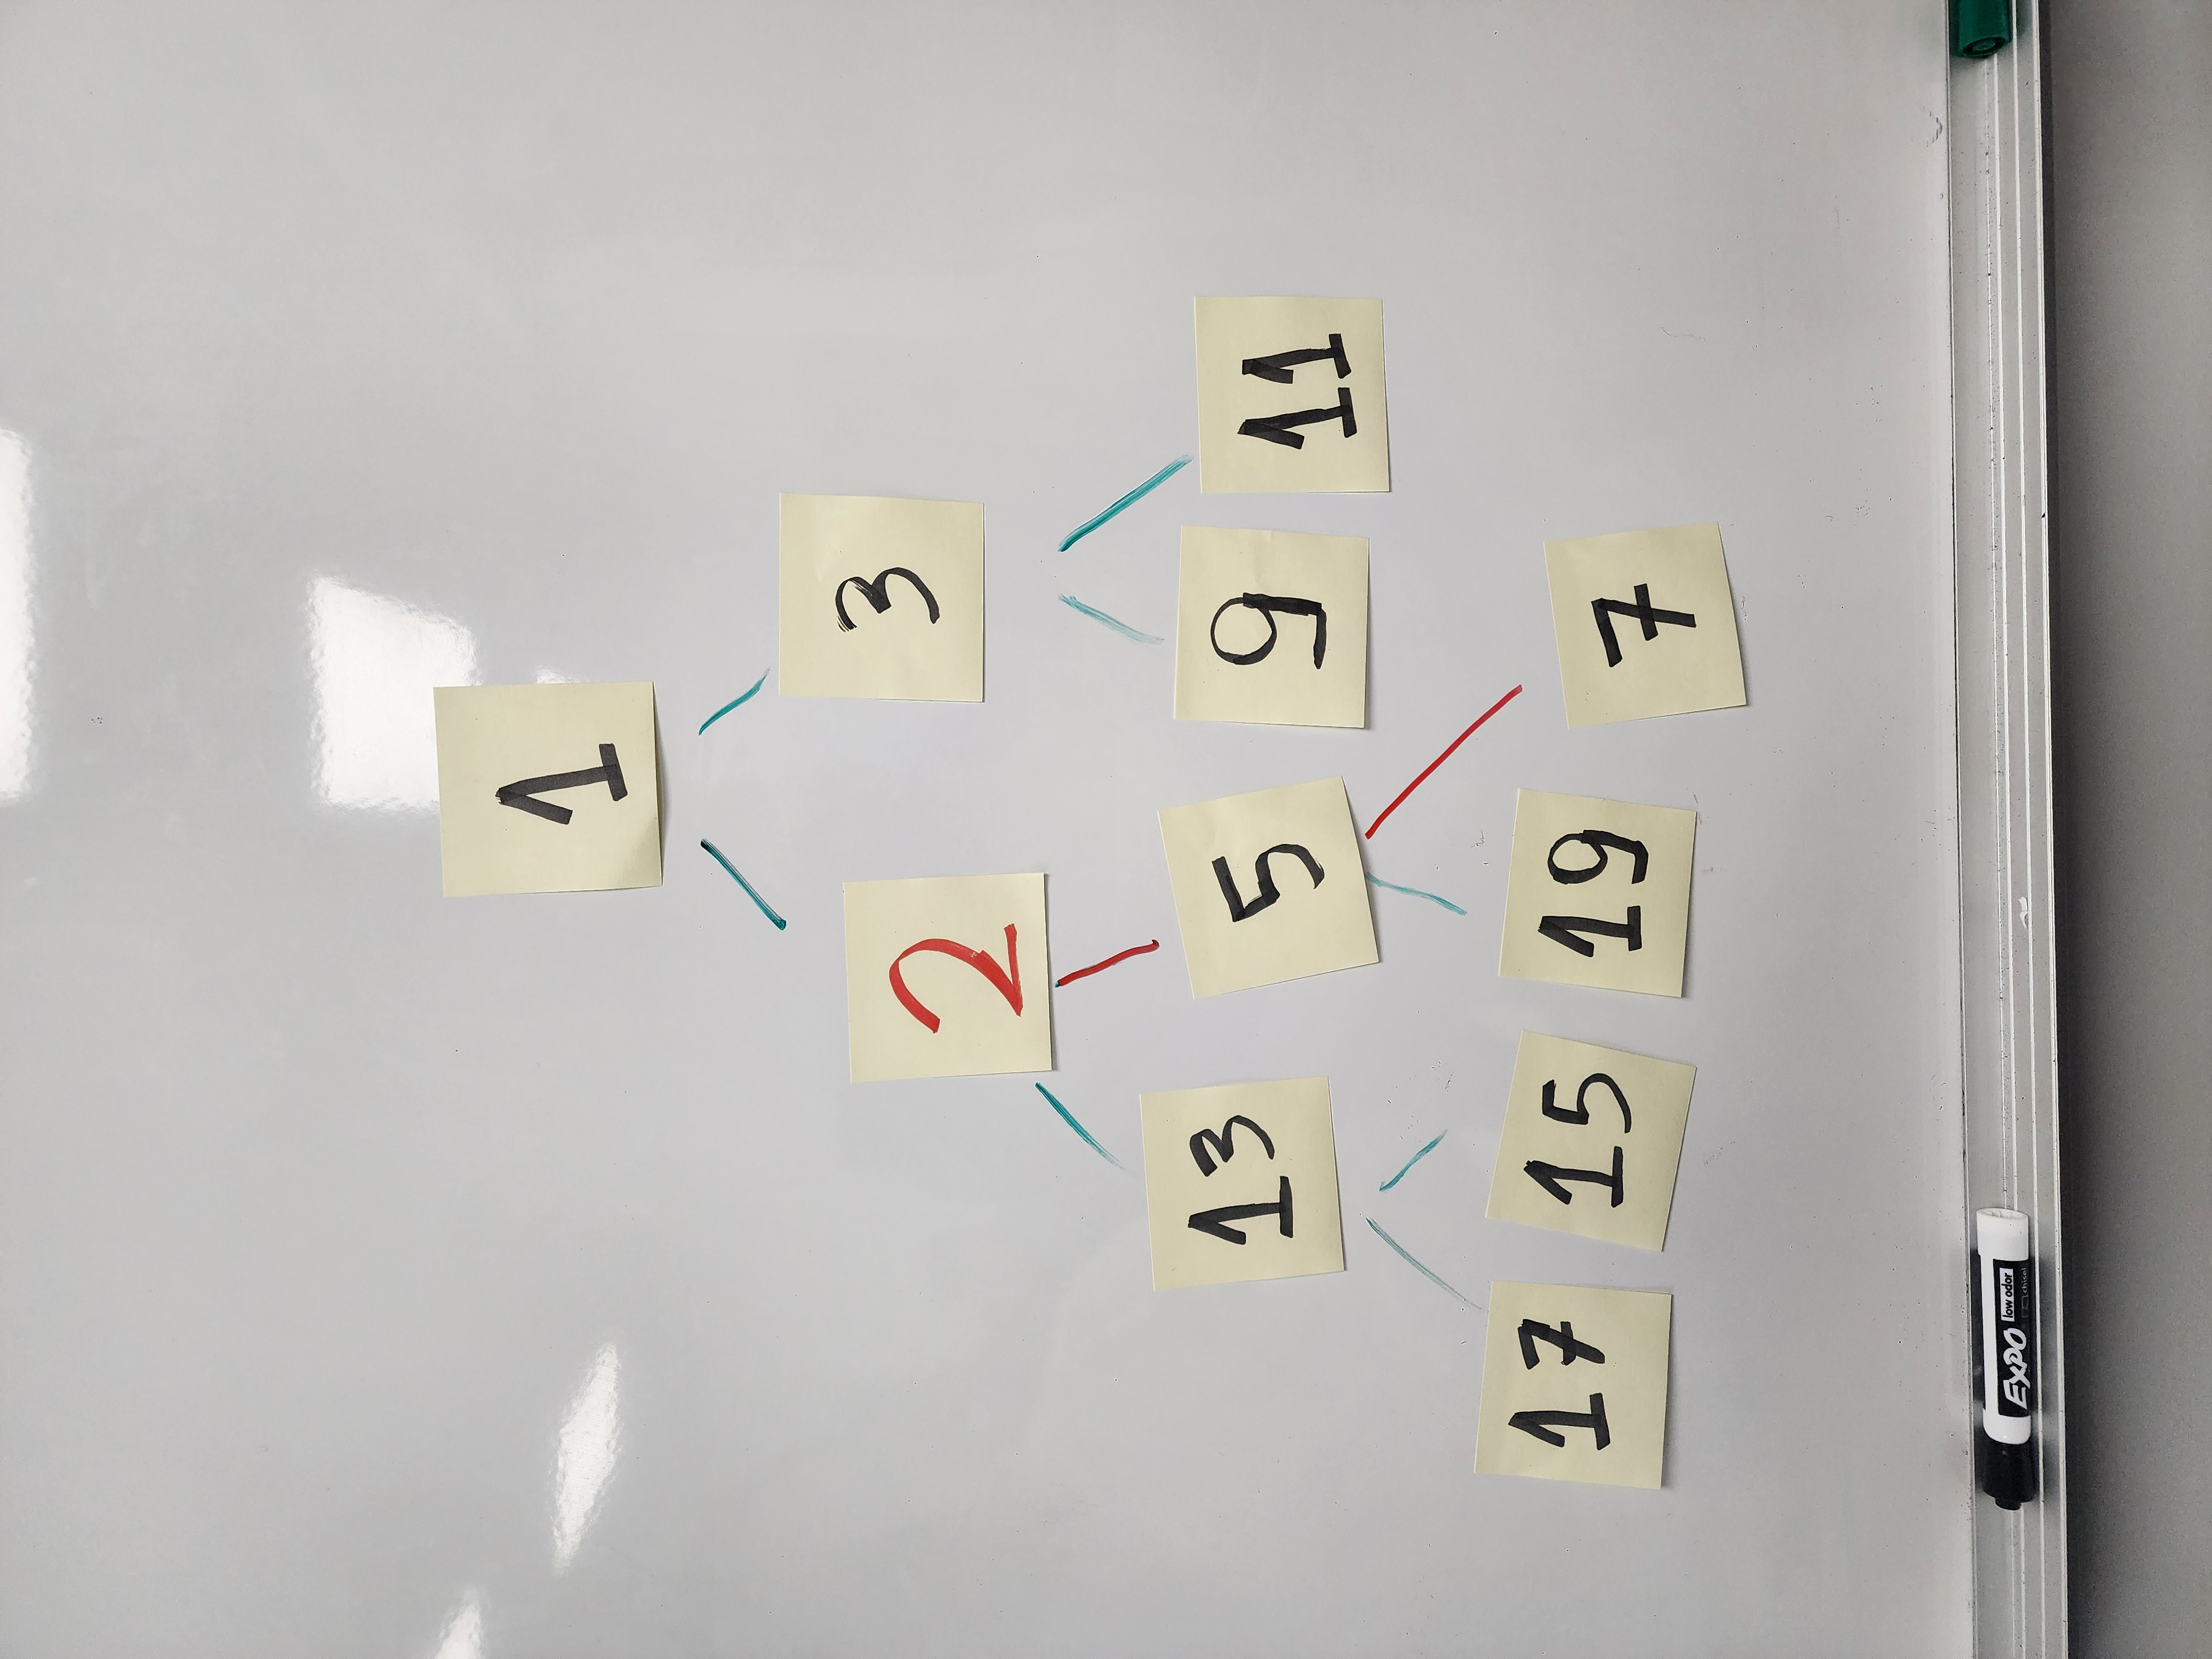 1
2 3
13 5 9 11
17 15 19 7
EXPO low odor
chisel